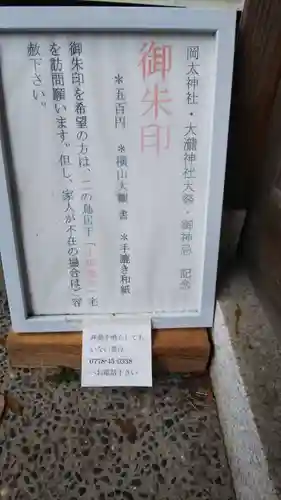 岡太神社・大瀧神社大祭・御神忌 記念
御朱印
*五百円 *横山大観 書 *手漉き和紙
御朱印を希望の方は、二の鳥居下
を訪問願います。但し、家人が不在の場合は、容
赦下さい。
いない場合
0778-43-0338
へお電話下さい